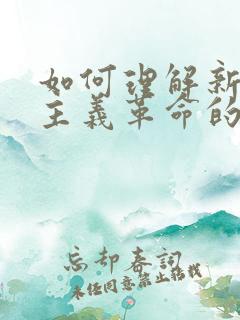 如何理解新
主义革命的
忘却春词
未经同意禁止转载